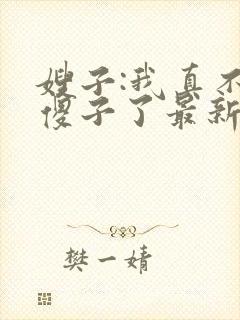 嫂子:我真不
傻子了最新
樊一婧